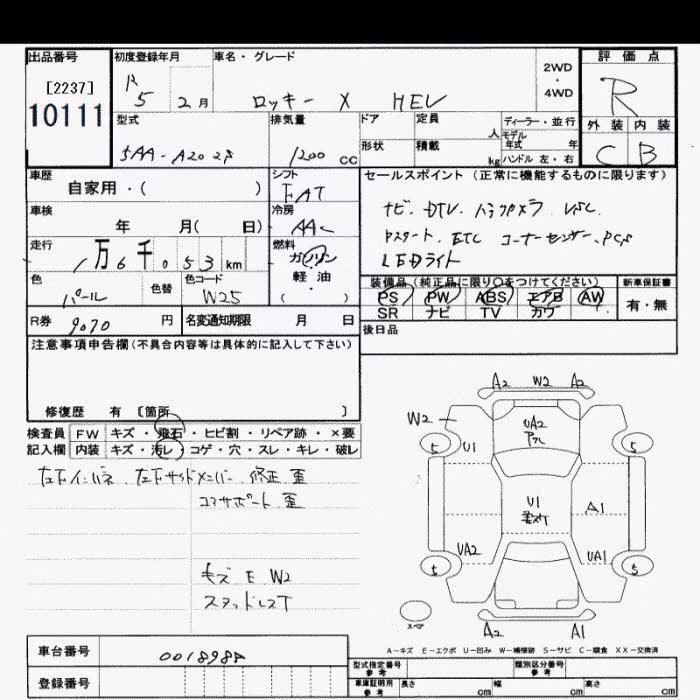 出品番号 初度登録年月 車名・グレード 2WD・4WD 評価点
[2237]
10111
R5 2月 ロッキー X HEV R
型式 排気量 ドア 定員 人 ディーラー・並行 外装 内装
モデル年式 年
5AA-A202S 1200 CC 形状 積載 kg ハンドル 左・右 C B
車歴 シフト セールスポイント (正常に機能するものに限ります)
自家用・( ) FAT
車検 冷房 ナビ. DTV. バックカメラ VSC.
年 月( 日) AAC Pスタート. ETC コーナーセンサー. PCS
走行 燃料 LEDライト
1万6千053km ガソリン
軽・油
( )
色 色替 色コード 装備品 (純正品に限り○をつけてください) 新車保証書
パール W25 PS PW ABS エアB AW 有・無
SR ナビ TV カワ
R券 9070 円 名変通知期限 月 日 後日品
注意事項申告欄(不具合内容等は具体的に記入して下さい)
修復歴 有 [箇所 ]
検査員 FW キズ・飛石・ヒビ割・リペア跡・×要
記入欄 内装 キズ・汚レ・コゲ・穴・スレ・キレ・破レ
左Fインパネ. 左Fサイドメンバー 修正 歪
コアサポート 歪
キズ E W2
スタッドレスT
A2 W2 A2
W2 UA2
5 U1 5
U1 A1
UA2 UA1
5 5
スペア A2 A1
A-キズ E-エクボ U-凹み W-補修跡 S-サビ C-腐食 XX-交換済
車台番号 0018988
登録番号
型式指定番号 参考 類別区分番号 参考
車庫証明用 参考 長さ cm 幅 cm 高さ cm